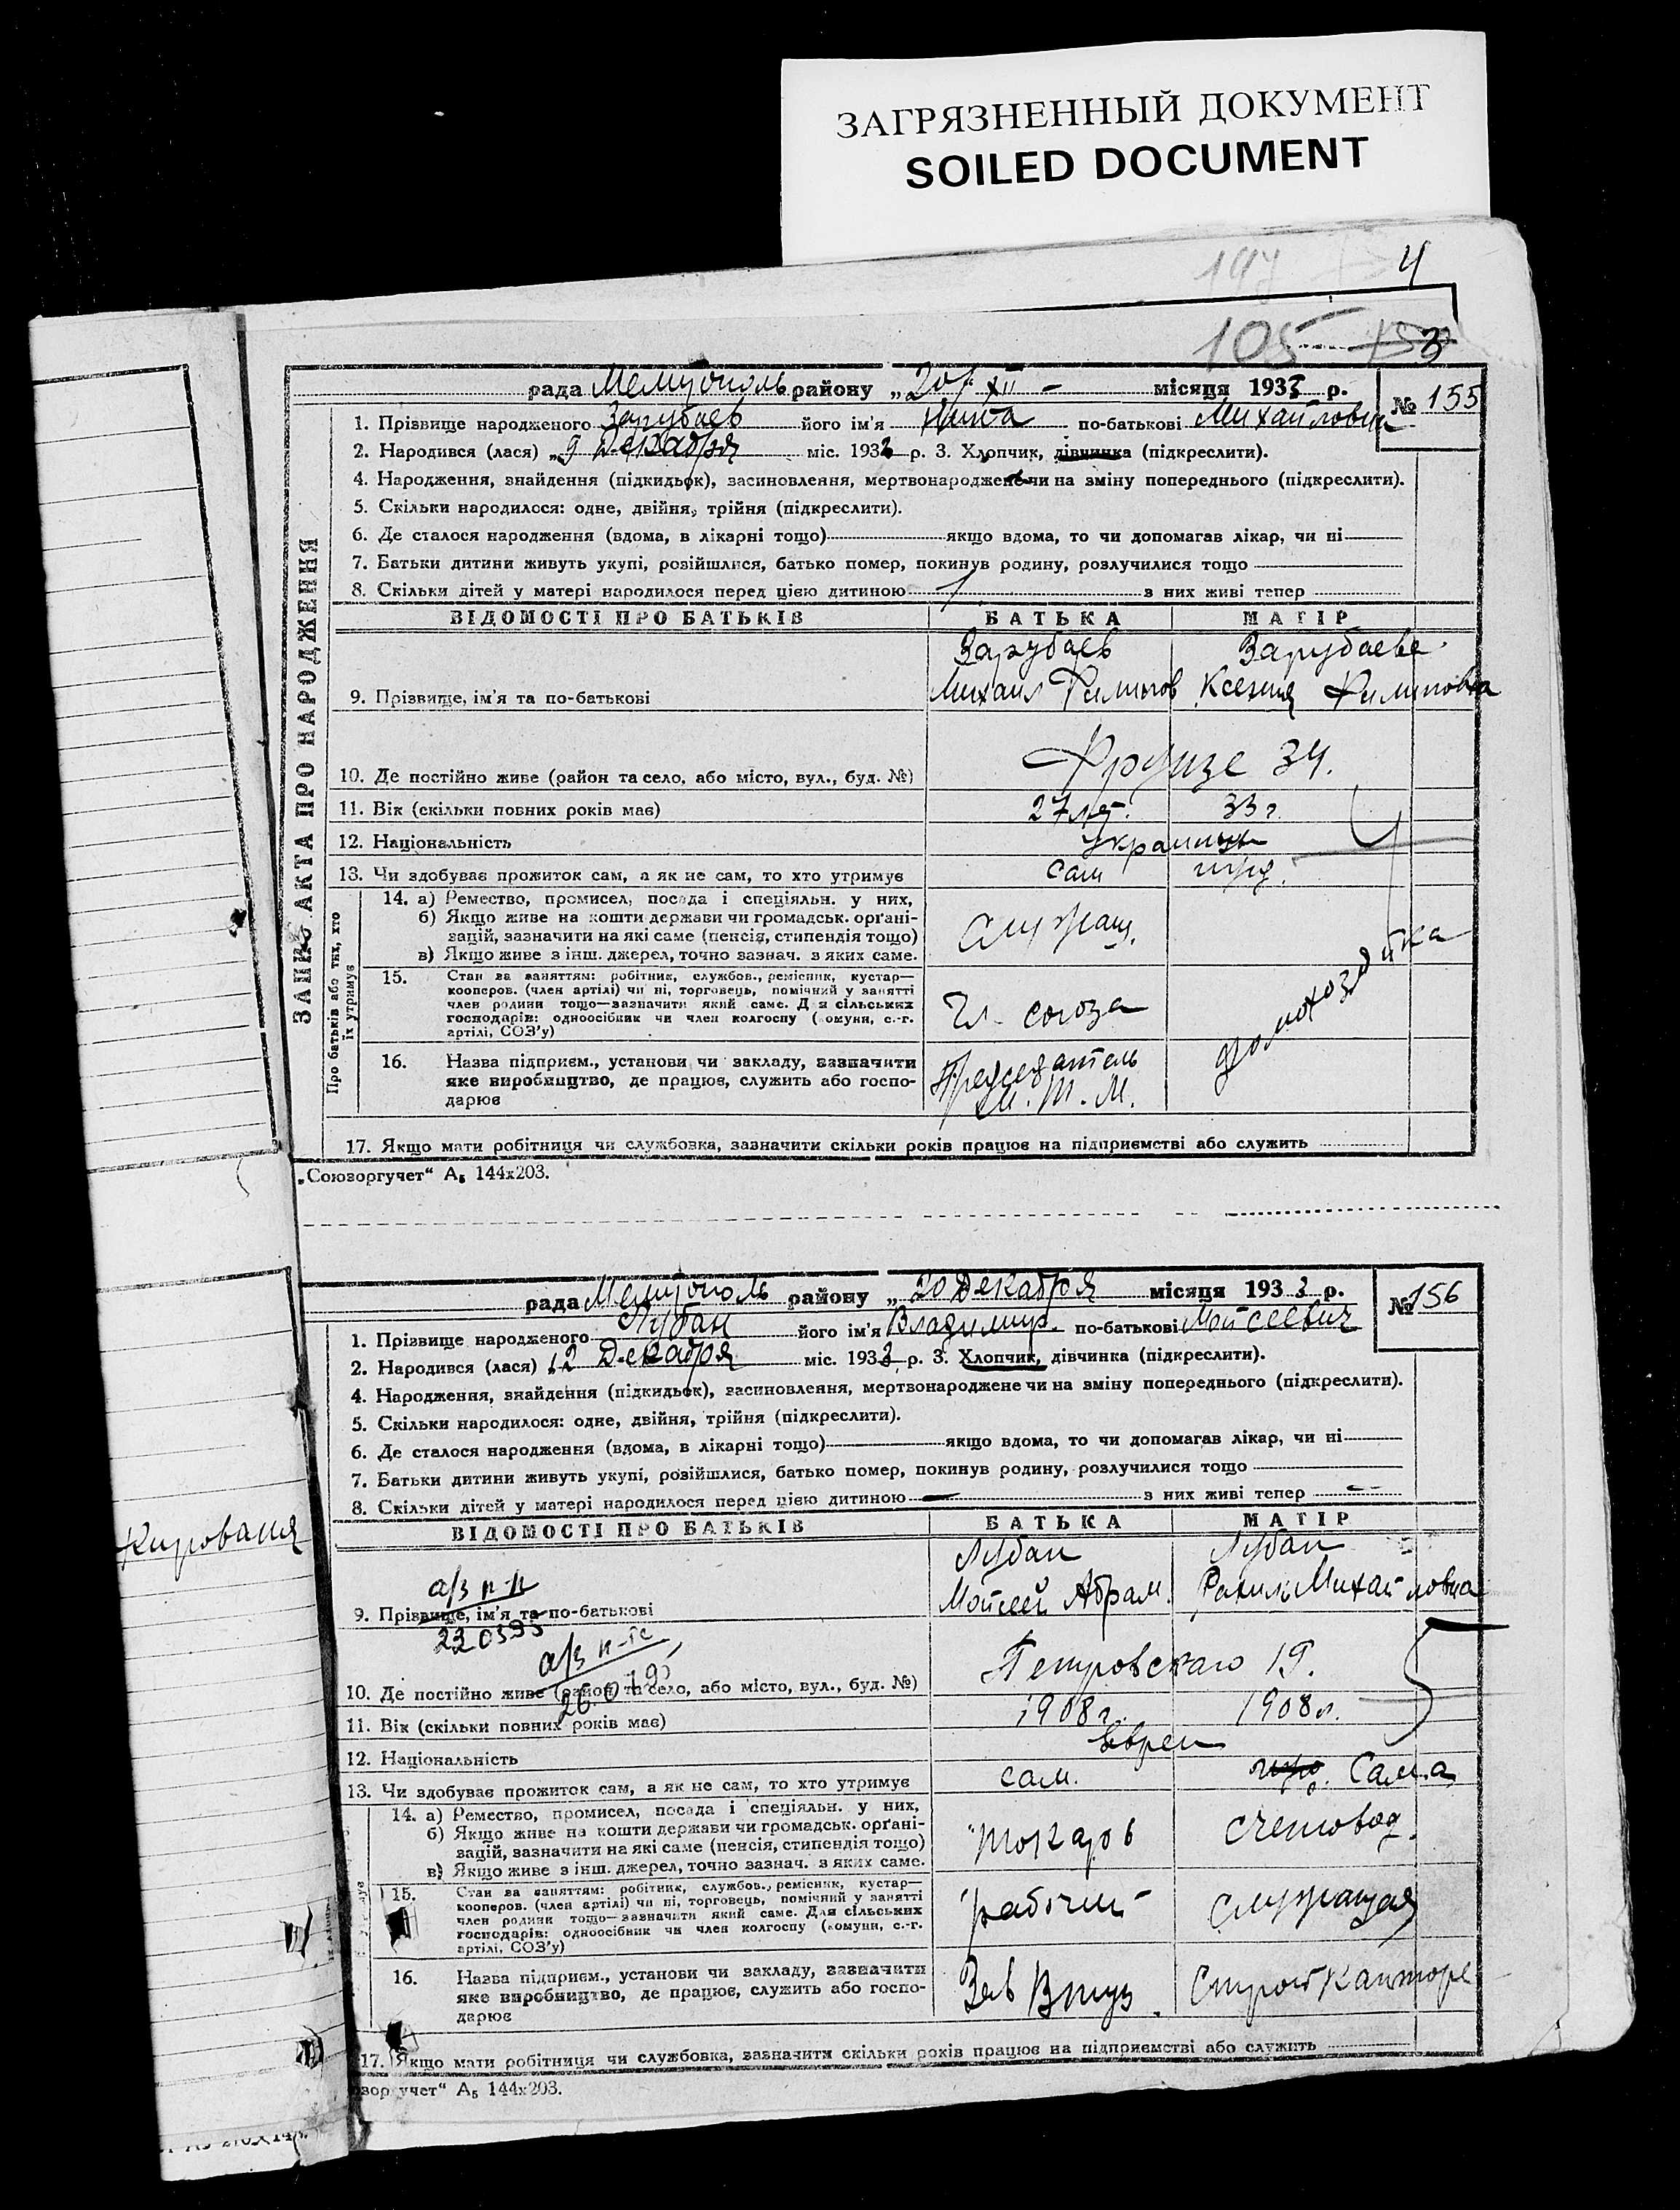 ЗАГРЯЗНЕННЫЙ ДОКУМЕНТ
SOILED DOCUMENT
4
105
рада Мелитополь району „20" XII – місяця 1933 р.
№ 155
ЗАПИС АКТА ПРО НАРОДЖЕННЯ
1. Прізвище народженого Зарубаев його ім'я Нина по-батькові Михайловна
2. Народився (лася) „9 Декабря міс. 1933 р. 3. Хлопчик, дівчинка (підкреслити).
4. Народження, знайдення (підкидьок), засиновлення, мертвонароджене чи на зміну попереднього (підкреслити).
5. Скільки народилося: одне, двійня, трійня (підкреслити).
6. Де сталося народження (вдома, в лікарні тощо) якщо вдома, то чи допомагав лікар, чи ні
7. Батьки дитини живуть укупі, розійшлися, батько помер, покинув родину, розлучилися тощо
8. Скільки дітей у матері народилося перед цією дитиною 1 з них живі тепер
ВІДОМОСТІ ПРО БАТЬКІВ БАТЬКА МАТІР
Зарубаев Зарубаева
9. Прізвище, ім'я та по-батькові Михаил Филипов Ксения Филиповна
10. Де постійно живе (район та село, або місто, вул., буд. №) Фрунзе 34.
11. Вік (скільки повних років має) 27 лет. 33 г.
12. Національність Украинцы
13. Чи здобуває прожиток сам, а як не сам, то хто утримує сам муж.
Про батьків або тих, хто їх утримує
14. а) Ремество, промисел, посада і спеціяльн. у них,
б) Якщо живе на кошти держави чи громадськ. організацій, зазначити на які саме (пенсія, стипендія тощо)
в) Якщо живе з інш. джерел, точно зазнач. з яких саме.
служащ.
15. Стан за заняттям: робітник, службов., ремісник, кустар—
кооперов. (член артілі) чи ні, торговець, помічний у занятті
член родини тощо—зазначити який саме. Для сільських
господарів: одноосібник чи член колгоспу (комуни, с.-г.
артілі, СОЗ'у)
Чл. союза
домохозяйка
16. Назва підприєм., установи чи закладу, зазначити
яке виробництво, де працює, служить або господарює
Председатель
17. Якщо мати робітниця чи службовка, зазначити скільки років працює на підприємстві або служить
„Союзоргучет“ А₅ 144х203.
рада Мелитополь району „20 Декабря місяця 1933 р.
№ 156
1. Прізвище народженого Лубан його ім'я Владимир. по-батькові Мойсеевич
2. Народився (лася) „2 Декабря міс. 1933 р. 3. Хлопчик, дівчинка (підкреслити).
4. Народження, знайдення (підкидьок), засиновлення, мертвонароджене чи на зміну попереднього (підкреслити).
5. Скільки народилося: одне, двійня, трійня (підкреслити).
6. Де сталося народження (вдома, в лікарні тощо) якщо вдома, то чи допомагав лікар, чи ні
7. Батьки дитини живуть укупі, розійшлися, батько помер, покинув родину, розлучилися тощо
8. Скільки дітей у матері народилося перед цією дитиною — з них живі тепер —
ВІДОМОСТІ ПРО БАТЬКІВ БАТЬКА МАТІР
Лубан Лубан
9. Прізвище, ім'я та по-батькові Мойсей Абрам. Рахиль Михайловна
10. Де постійно живе (район та село, або місто, вул., буд. №) Петровского 19.
11. Вік (скільки повних років має) 1908 г. 1908 г.
12. Національність Евреи
13. Чи здобуває прожиток сам, а як не сам, то хто утримує сам. Сама
14. а) Ремество, промисел, посада і спеціяльн. у них,
б) Якщо живе на кошти держави чи громадськ. організацій, зазначити на які саме (пенсія, стипендія тощо)
в) Якщо живе з інш. джерел, точно зазнач. з яких саме.
токарь счетовод.
15. Стан за заняттям: робітник, службов., ремісник, кустар—
кооперов. (член артілі) чи ні, торговець, помічний у занятті
член родини тощо—зазначити який саме. Для сільських
господарів: одноосібник чи член колгоспу (комуни, с.-г.
артілі, СОЗ'у)
рабочий служащая
16. Назва підприєм., установи чи закладу, зазначити
яке виробництво, де працює, служить або господарює
Зав Втуз. Стройканторе
17. Якщо мати робітниця чи службовка, зазначити скільки років працює на підприємстві або служить
учет“ А₅ 144х203.